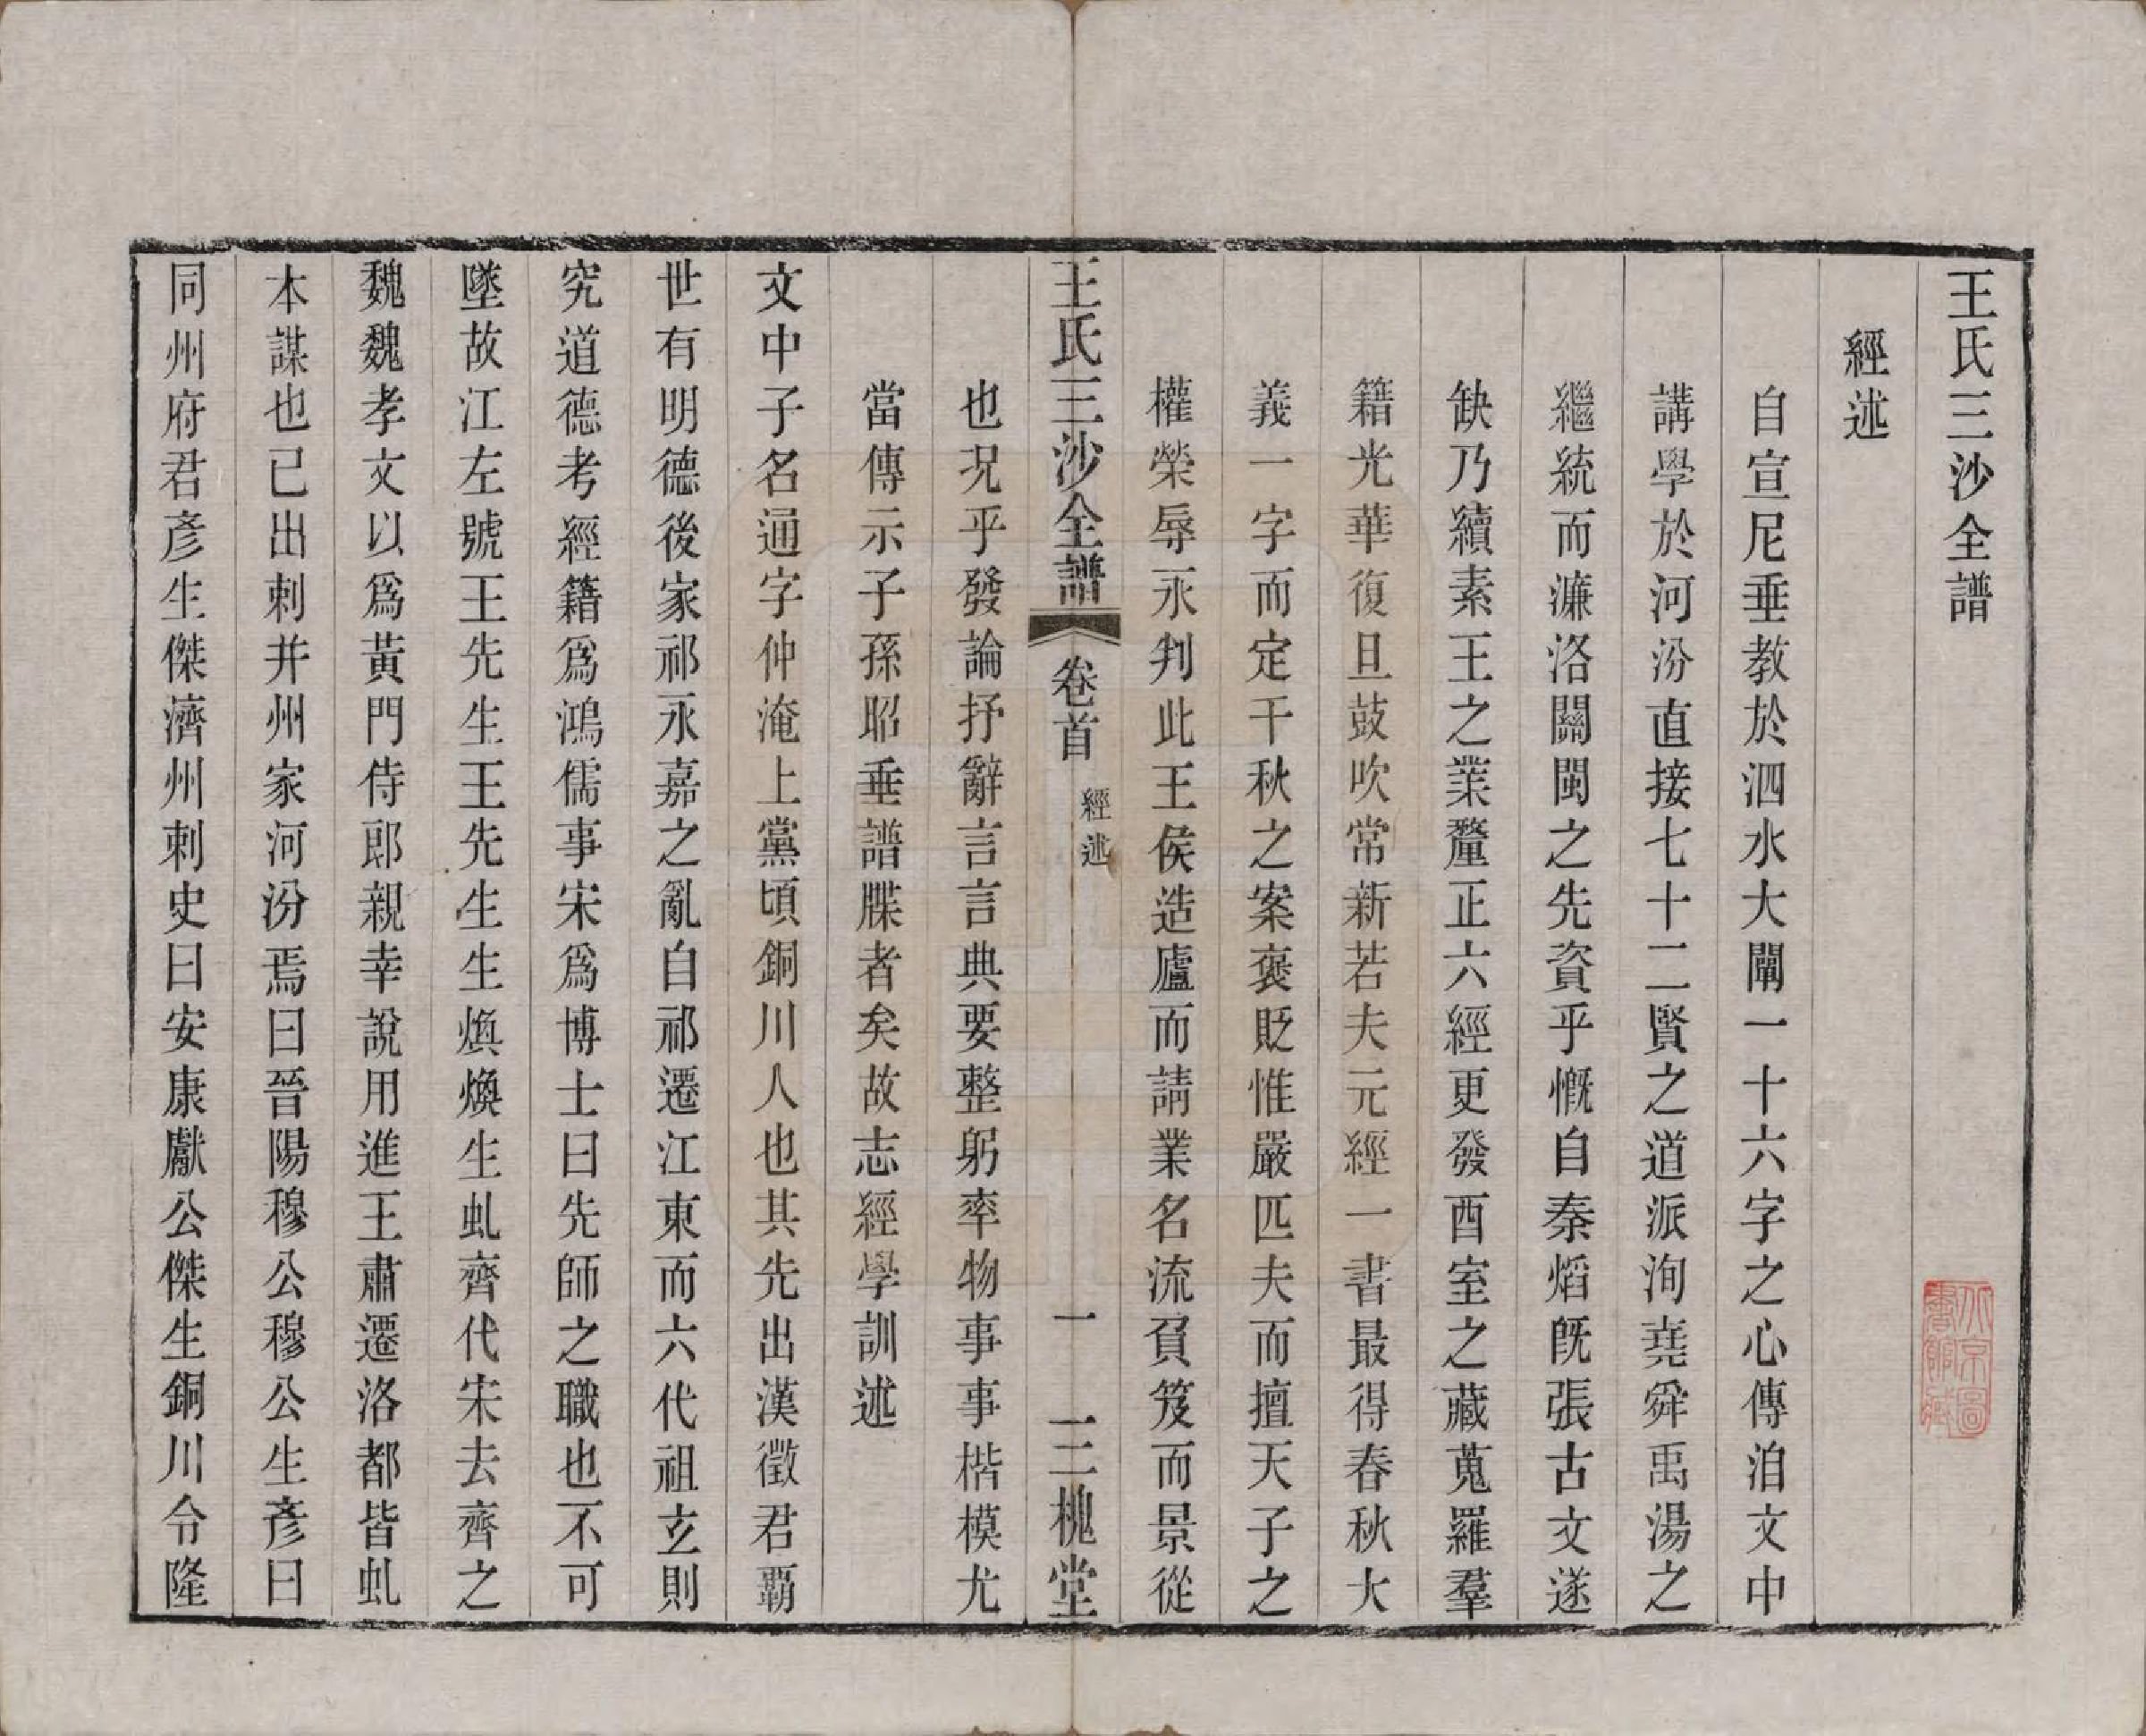 王氏三沙全譜
經述
自宣尼垂教於泗水大闡一十六字之心傳洎文中
講學於河汾直接七十二賢之道派洵堯舜禹湯之
繼統而濂洛關閩之先資乎慨自秦焰旣張古文遂
缺乃續素王之業釐正六經更發酉室之藏蒐羅羣
籍光華復旦鼓吹常新若夫元經一書最得春秋大
義一字而定千秋之案褒貶惟嚴匹夫而擅天子之
權榮辱永判此王侯造廬而請業名流負笈而景從
也況乎發論抒辭言言典要整躬率物事事楷模尤
當傳示子孫昭垂譜牒者矣故志經學訓述
王氏三沙全譜 卷首 經述 一 三槐堂
文中子名通字仲淹上黨頃銅川人也其先出漢徵君霸
世有明德後家祁永嘉之亂自祁遷江東而六代祖玄則
究道德考經籍爲鴻儒事宋爲博士曰先師之職也不可
墜故江左號王先生王先生生煥煥生虬齊代宋去齊之
魏魏孝文以爲黃門侍郎親幸說用進王肅遷洛都皆虬
本謀也已出刺并州家河汾焉曰晉陽穆公穆公生彥曰
同州府君彥生傑濟州刺史曰安康獻公傑生銅川令隆